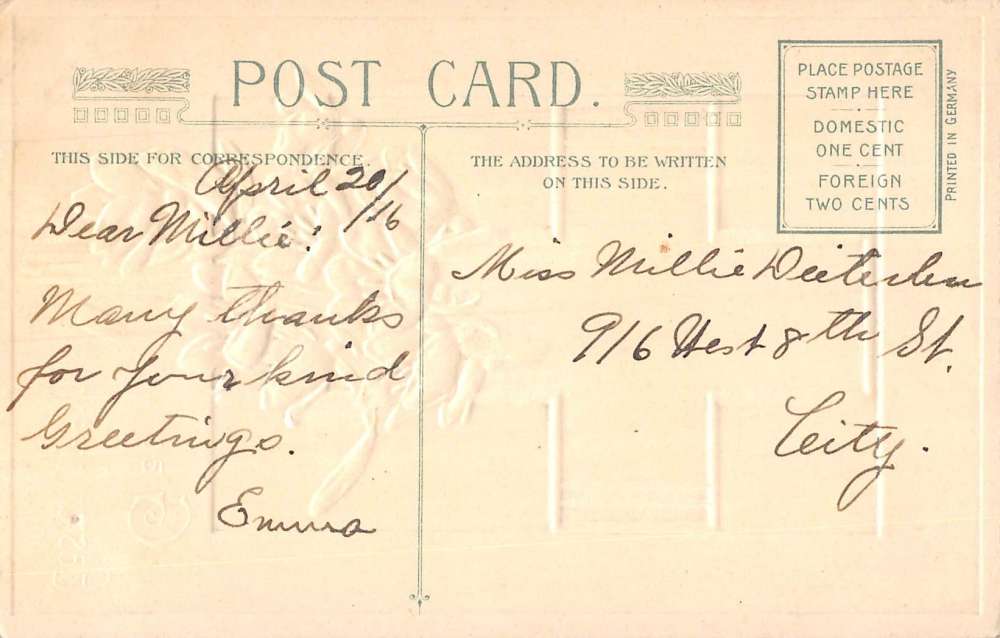 POST CARD.
THIS SIDE FOR CORRESPONDENCE.
April 20/
/16
Dear Millie!
Many thanks
for your kind
Greetings.
Emma
THE ADDRESS TO BE WRITTEN
ON THIS SIDE.
PLACE POSTAGE
STAMP HERE
DOMESTIC
ONE CENT
FOREIGN
TWO CENTS
PRINTED IN GERMANY
Miss Millie
916 West 8th St.
City.